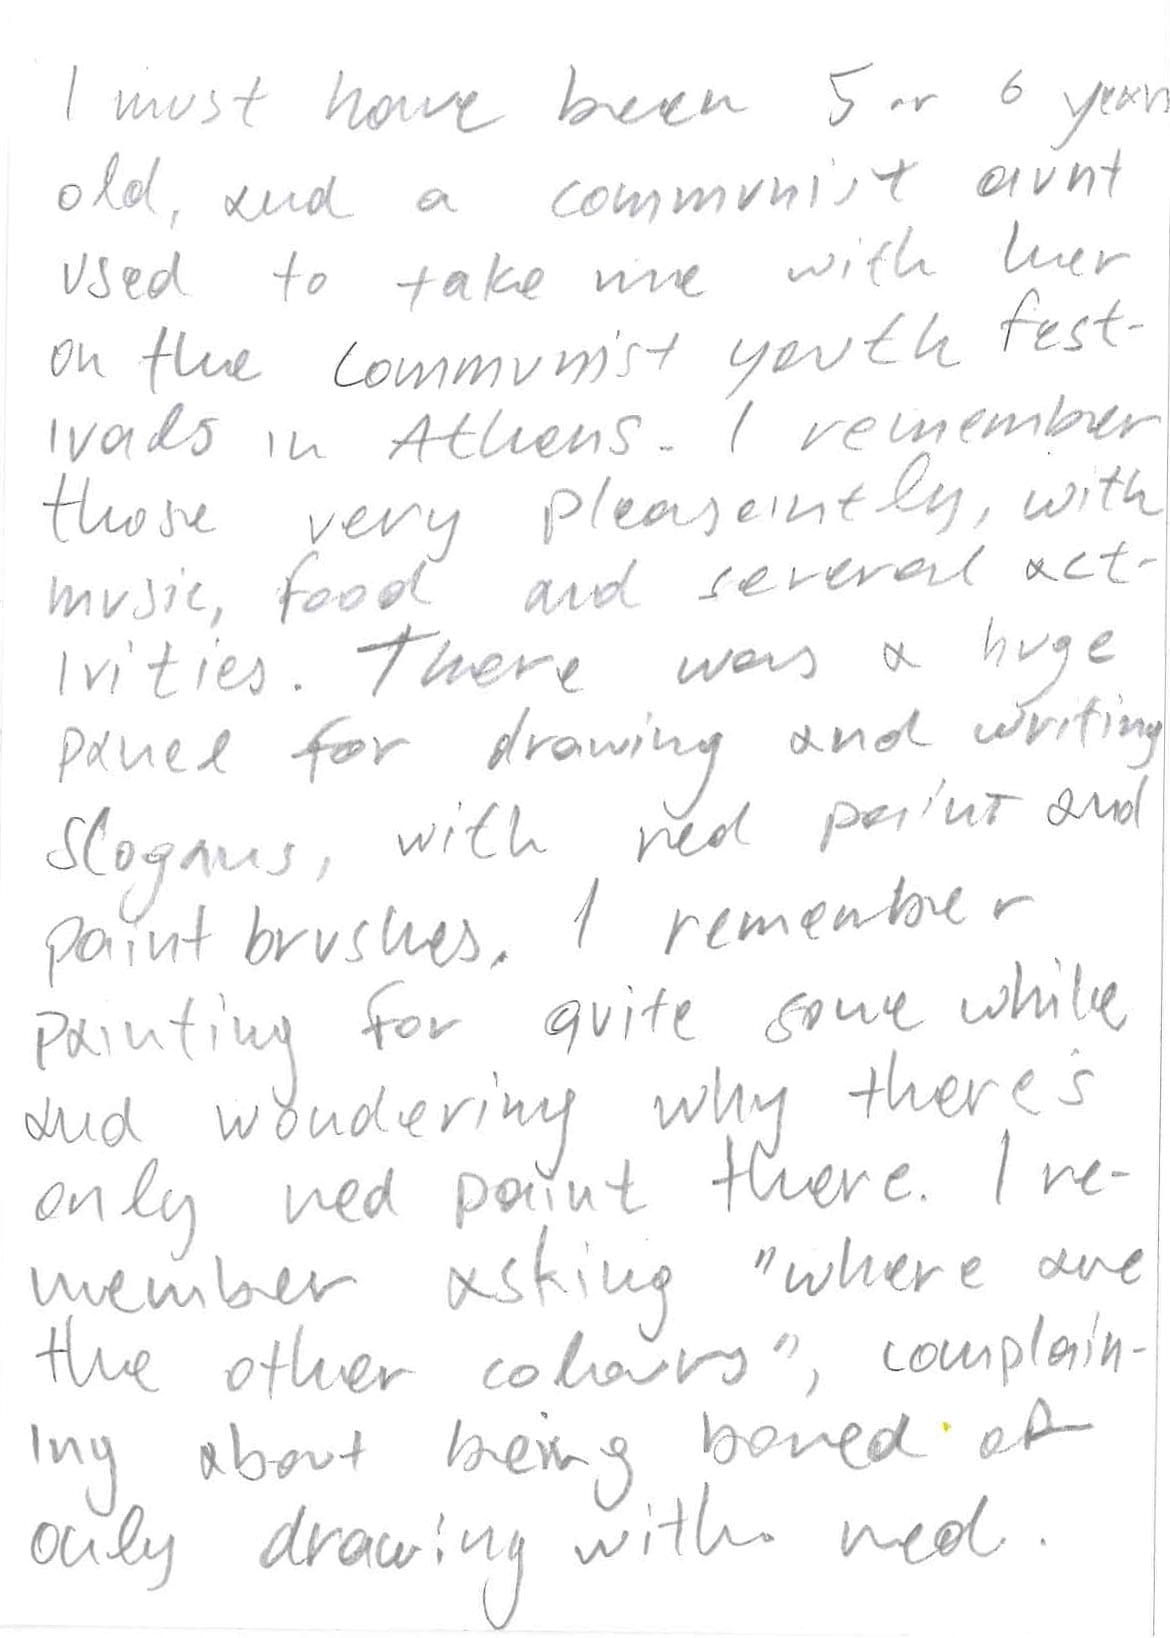 I must have been 5 or 6 years
old, and a communist aunt
used to take me with her
on the communist youth fest-
ivals in Athens. I remember
those very pleasantly, with
music, food and several act-
ivities. There was a huge
panel for drawing and writing
slogans, with red paint and
paint brushes. I remember
painting for quite some while
and wondering why there's
only red paint there. I re-
member asking "where are
the other colours", complain-
ing about being bored of
only drawing with red.